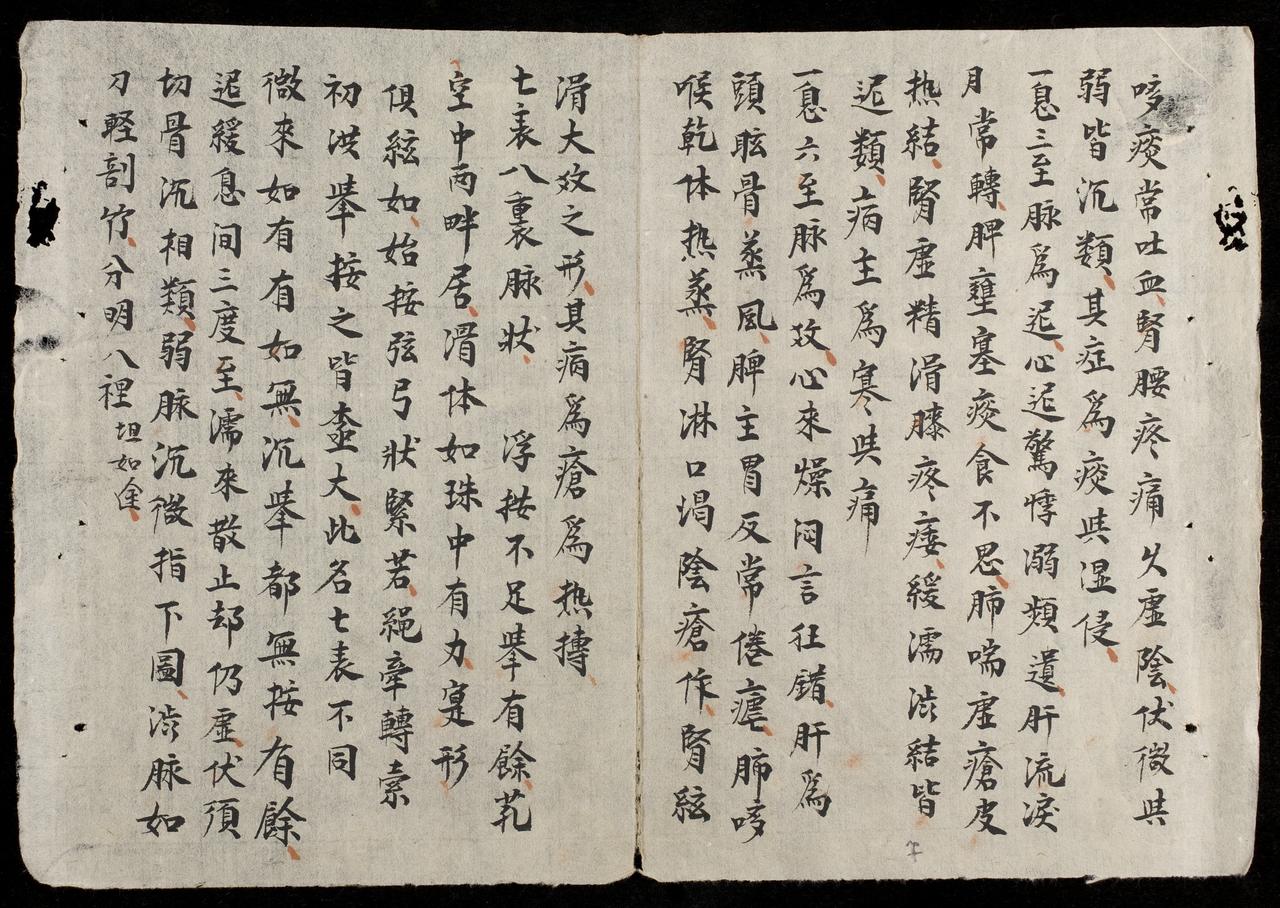 咳痰常吐血腎腰疼痛久虛陰伏微共
弱皆沉類其症為痰共湿侵
一息三至脉爲迟心迟驚悸溺頻遺肝流淚
月常轉脾壅塞痰食不思肺喘虛瘡皮
热結腎虛精滑膝疼痿緩濡澁結皆
迟類病主爲寒共痛
一息六至脉爲效心来燥闷言狂錯肝爲
頭眩骨蒸風脾主胃反常倦瘧肺咳
喉乾体热蒸腎淋口渴陰瘡作腎絃
滑大效之形其病爲瘡爲热搏
七表八裏脉状 浮按不足舉有餘芤
空中兩畔居滑体如珠中有力寔形
俱絃如始按弦弓状緊若繩牽轉索
初洪舉按之皆盍大此名七表不同
微來如有有如無沉舉都無按有餘
迟緩息间三度至濡來散止却仍虛伏須
切骨沉相類弱脉沉微指下圖澁脉如
刀軽剖竹分明八裡坦如途